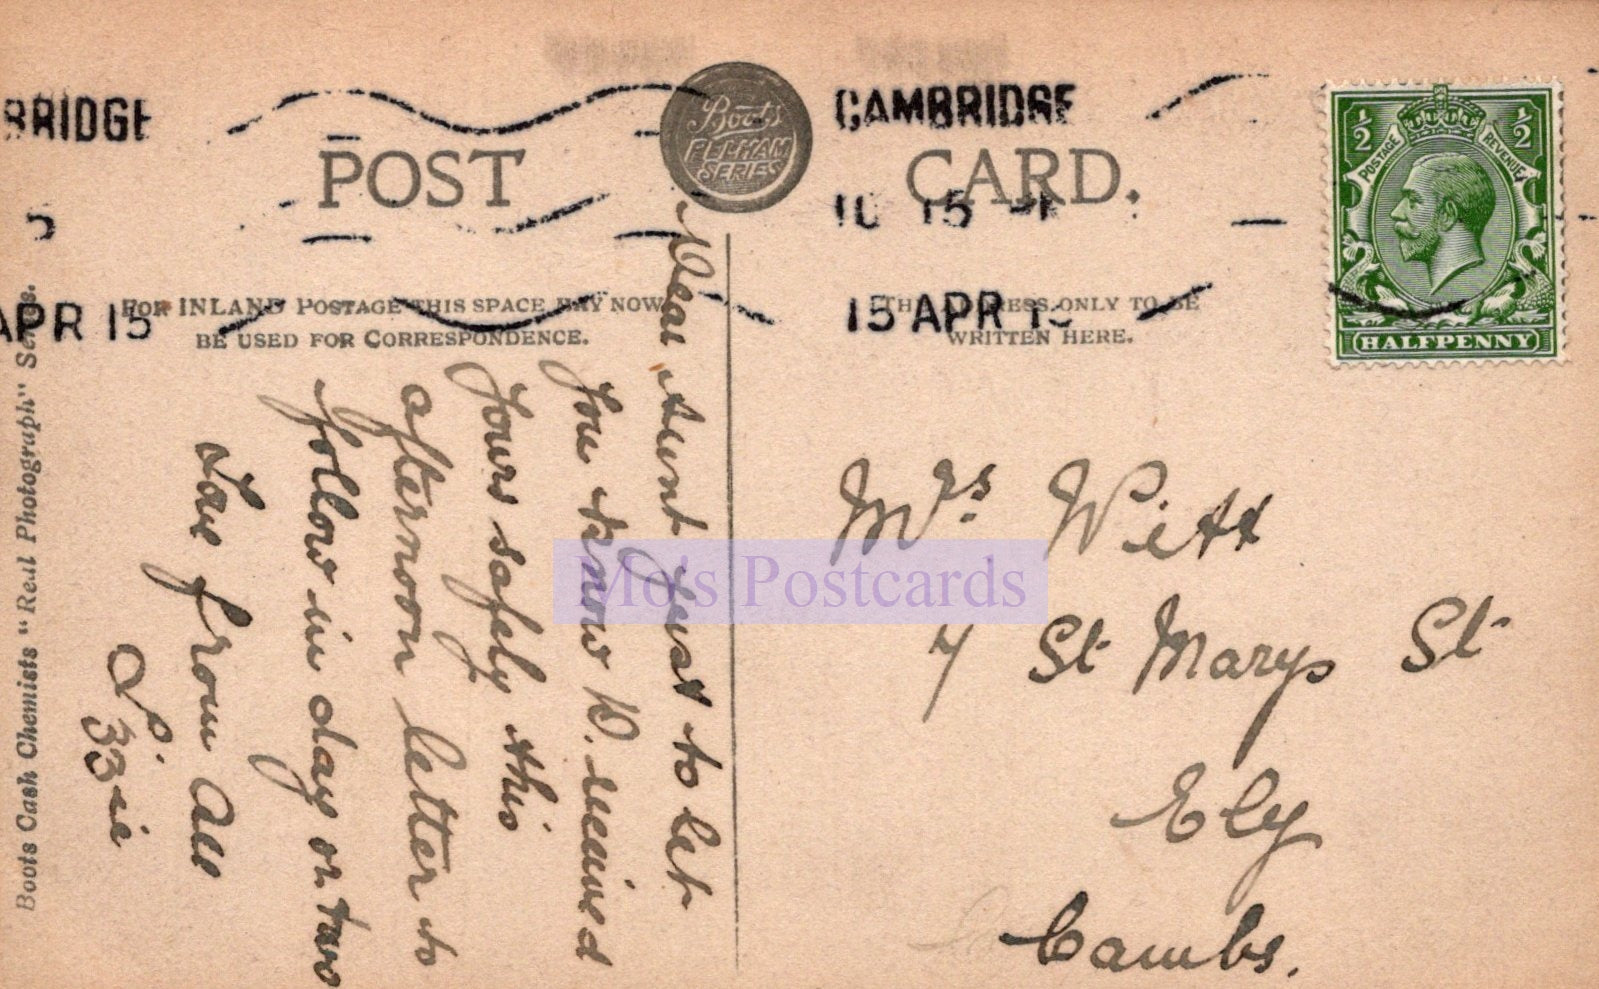 BRIDGE
5
APR 15
CAMBRIDGE
15 APR
POST CARD.
Boots
PELHAM
SERIES
½ ½
POSTAGE REVENUE
HALFPENNY
FOR INLAND POSTAGE THIS SPACE MAY NOW
BE USED FOR CORRESPONDENCE.
THE ADDRESS ONLY TO BE
WRITTEN HERE.
Dear Aunt Just to let
You know W. received
Yours safely this
afternoon letter to
follow in day or two
Love from all
Lizzie
Mrs. Pitt
7 St Marys St
Ely
Cambs.
Boots Cash Chemists "Real Photograph" Series.
Mo's Postcards